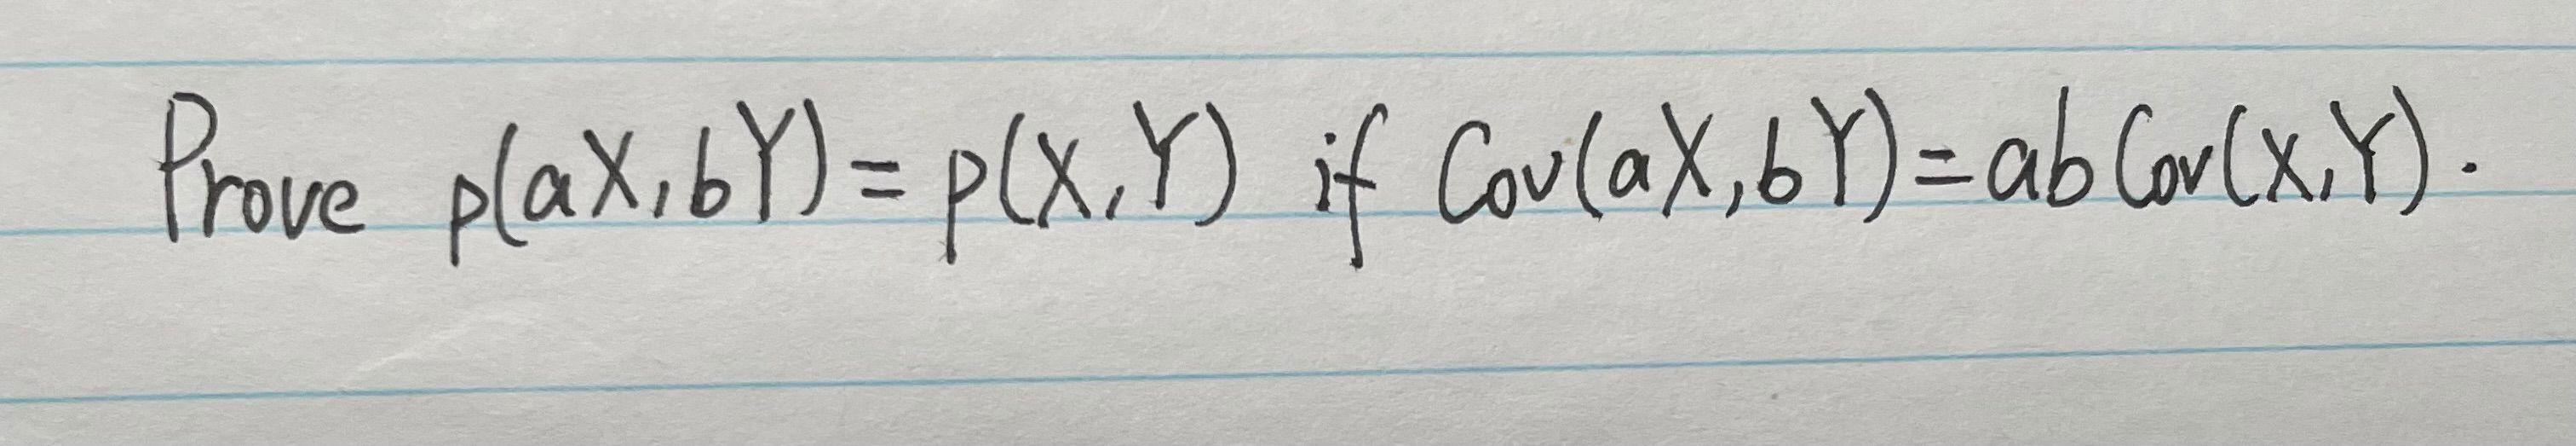 Prove p(aX,bY)=p(X,Y) if Cov(aX,bY)=abCov(X,Y).